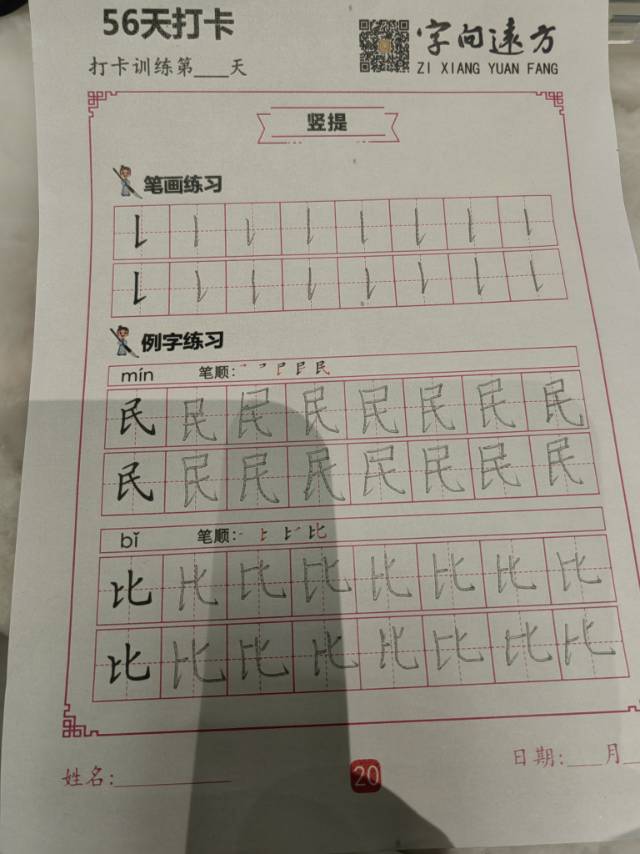 56天打卡
字向远方
打卡训练第___天
ZI XIANG YUAN FANG
竖提
笔画练习
例字练习
mín 笔顺:
民 民 民 民 民 民 民 民
民 民 民 民 民 民 民 民
bǐ 笔顺:
比 比 比 比 比 比 比 比
比 比 比 比 比 比 比 比
姓名:__________ 20 日期:___月